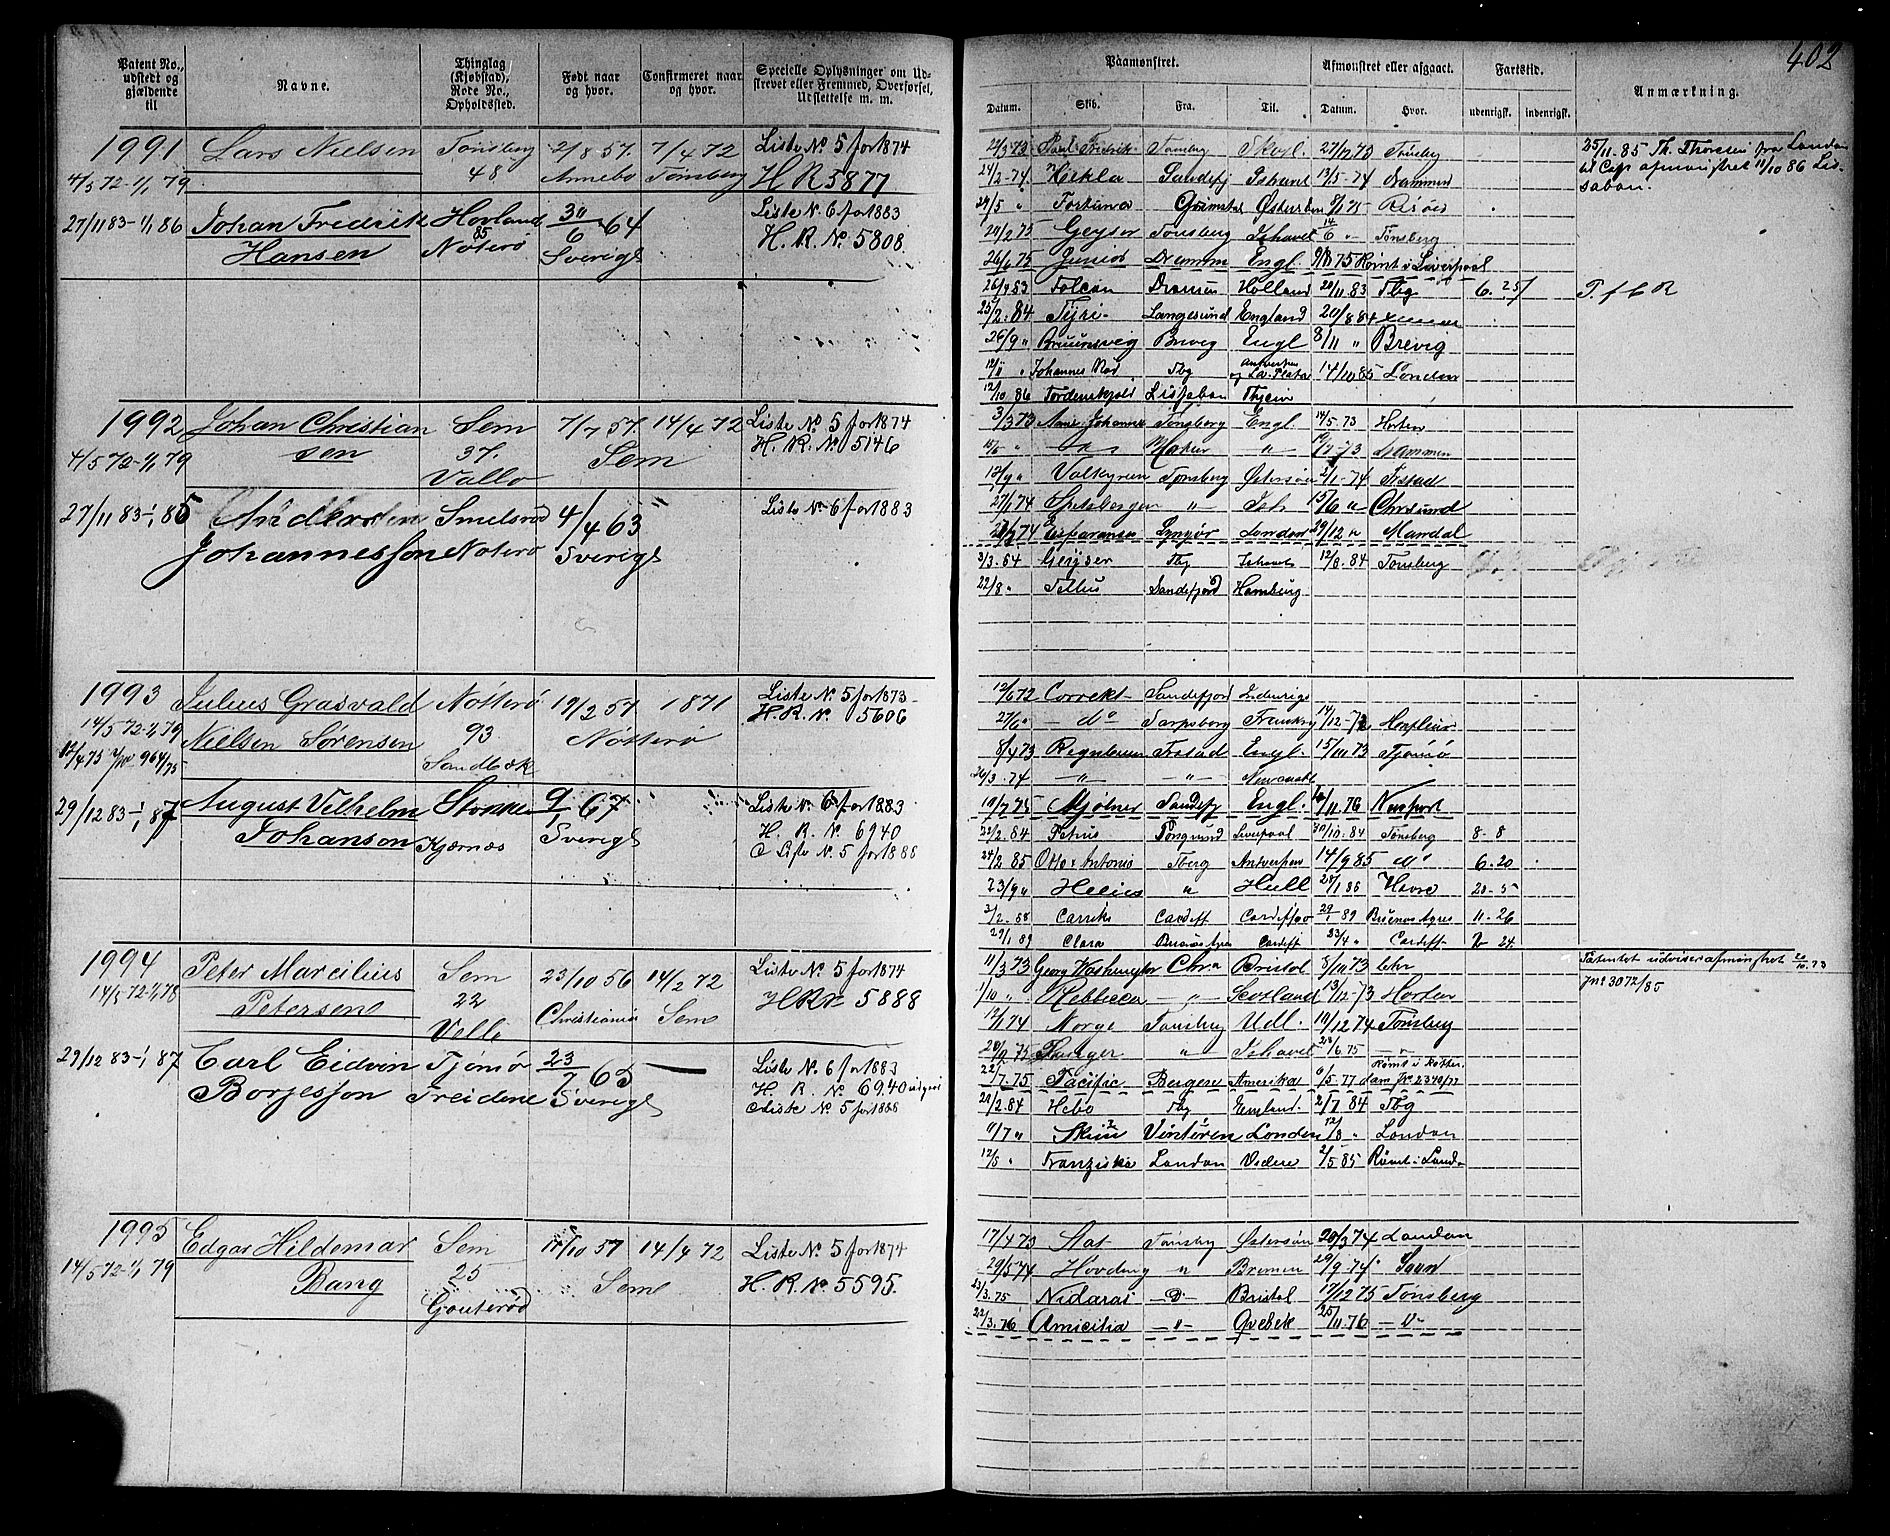 402
Patent No., udstedt og gjældende til
Navne.
Thinglag (Kjøbstad), Rode No., Opholdssted.
Født naar og hvor.
Confirmeret naar og hvor.
Specielle Oplysninger om Udskrevet eller Fremmed, Overførsel, Udslettelse m. m.
Paamønstret.
Afmønstret eller afgaaet.
Fartstid.
Anmærkning.
Datum. Skib. Fra. Til. Datum. Hvor. udenrigsk. indenrigsk.
1991 Lars Nielsen Tønsberg 2/8 57. 7/4 72 Liste No 5 for 1874
4/5 72-1/1 79 48 Arnebo Tønsberg H R 5877
27/11 83-1/1 86 Johan Fredrik Hovland 30/6 64 Liste No. 6 for 1883
Hansen 85 Nøterø Sverige H. R. No. 5808.
1992 Johan Christian Sem 7/7 57. 14/4 72 Liste No 5 for 1874
sen 37. Sem H. R. No 5146
4/5 72-1/1 79 Vallø
27/11 83-1/1 85 Andersen Smelsrød 4/4 63 " Liste No. 6 for 1883
Johannesson Nøterø Sverige
1993 Julius Grasvald Nøtterø 19/2 57 1871 Liste No 5 for 1873
14/5 72-1/1 79 H. R. No. 5606
Nielsen Sørensen 93 Nøtterø
Sandbæk
29/12 83-1/1 87 August Vilhelm Stokke 9/1 67 Liste No. 6 for 1883
Johanson Kjærnæs Sverige H. R. No 6940
Liste No. 5 for 1888
1994 Peter Marcilius Sem 23/10 56 14/2 72 Liste No. 5 for 1874
14/5 72-1/1 78 Petersen 22 Christiania Sem H R No 5888
Vallø
29/12 83-1/1 87 Carl Eidvin Tjømø 23/7 65 — Liste No. 6 for 1883
Borjesson Treidene Sverige H. R. No. 6940
Liste No. 5 for 1888
1995 Edgar Hildemar Sem 11/10 57 14/4 72 Liste No. 5 for 1874
14/5 72-1/1 79 Bang 25 Sem H. R. No 5595.
Gouterød
Tønsbg 27/12 73 Tønsbg
25/11 85 Th. Thorsen fra London
til Cap afmønstret 11/10 86 Lissabon.
24/2-74 Hekla Sandefj 13/5-74 Drammen
29/5 " Fortuna Grimstad Østersøen Risøer
20/2 75 Geyser Tønsberg Ishavet 14/6 " Tønsberg
26/6 75 Junior Dramm Engl. Rømt i Liverpool
26/9 83 Falcon Dramen Holland 20/11.83 Tbg 6. 25
25/2.84 Tyri Langesund England 20/8 84
26/9 " Bruunsvig Brevig Engl 8/11 " Brevig
12/11 " Johannes Rød Tbg Antverpen og La Plata 14/10 85 London
12/10 86 Tordenskjold Lissabon
3/3 73 Johannes Tønsberg Engl. 14/5.73 Horten
15/6 " " Drammen
12/9 " Valkyrien Tønsberg Østersøen 2/1-74 Frstad
27/1 74 Spitsbergen " Ish. 15/6 " Chrsund
Esperanza Lyngør London 29/12 " Mandal
3/3.84 Geyser Tbg Ishavet 12/8.84 Tønsberg
22/8 " Tellus Sandefjord Hamburg
12/6 72 Correkt Sandefjord Indenrigs
27/6 " — do Sarpsborg Frankrig 14/12-72 Honfleur
8/4 73 Frstad Engl. 15/11 73 Tjømø
26/3.74 — " — — " — Newcastle
19/7 75 Mjølner Sandefj Engl. 11 76 Newport
22/2.84 Petrus Liverpool 30/10.84 Tønsberg 8-8
24/2.85 Otto & Antonio Tberg Antverpen 14/9 85 do 6.20
23/9 " Helios " Hull 28/1 86 Havre 20-5
3/2.88 Carrike Cardiff 29/1 89 Buenos Ayres 11-26
29/1 89 Clara Buenos Ayres Cardiff 23/4 " Cardiff 2 24.
11/3 73 Georg Washington Chr.a Bristol 8/10 73 Chr Patentet udviser afmønstret 20/10.73
1/10 " Rebbecca — " Scotland 13/12-73 Horten Jno 3072/85
12/1 74 Norge Tønsbg Udl. 10/12 74 Tønsbg
20/2 75 " Ishavet 28/6.75 — " —
22/7.75 Pacific Bergen Amerika 6/5-77 Rømt i Rotterdam Jno 2340/77
29/2.84 Hebo Tbg England. 2/7 84 Tbg
11/7 " London 12/8 " London
12/5 " Franziska London 2/5 85 Rømt i London
17/4 73 Stat Tønsbg Østersøen 20/3 74 London
29/5 74 Høvding " Bremen 29/9-74
23/3.75 Nidaros — D — Bristol 17/12 75 Tønsberg
22/3.76 Amicitia — " — Qvebek 25/11.76 — " —